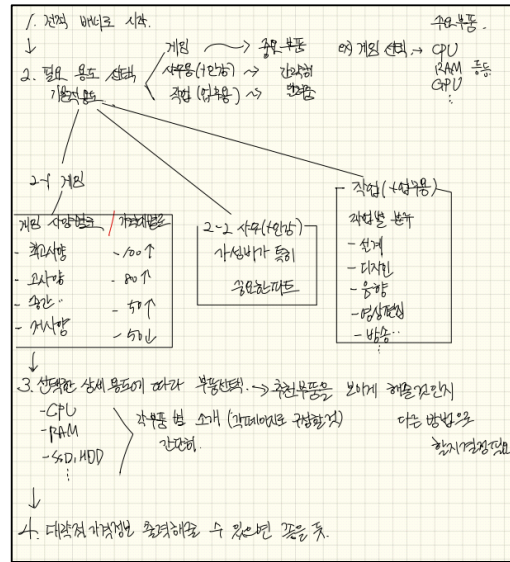 1. 견적 배너로 시작.
↓
2. 필요 용도 선택
기본적용도
게임 → 중요 부품
사무용(+인강) → 간략히
작업 (업무용) →
ex) 게임 선택. →
주요부품.
CPU
RAM 등등
GPU
⋮
2-1 게임
게임 사양별로 / 가격대별로
- 최고사양 - 100↑
- 고사양 - 80↑
- 중간.. - 50↑
- 저사양 - 50↓
2-2 사무(+인강)
가성비가 특히
중요한파트
작업(+업무용)
작업별 분류
- 설계
- 디자인
- 음향
- 영상편집
- 방송..
↓
3. 선택한 상세 용도에 따라 부품선택. → 추천부품을 보이게 해줄것인지
다른 방법으로
할지결정필요
- CPU
- RAM
- SSD, HDD
⋮
각부품 별 소개 (각페이지로 구성할것)
간단히.
↓
4. 대략적 가격정보 출력해줄 수 있으면 좋을 듯.